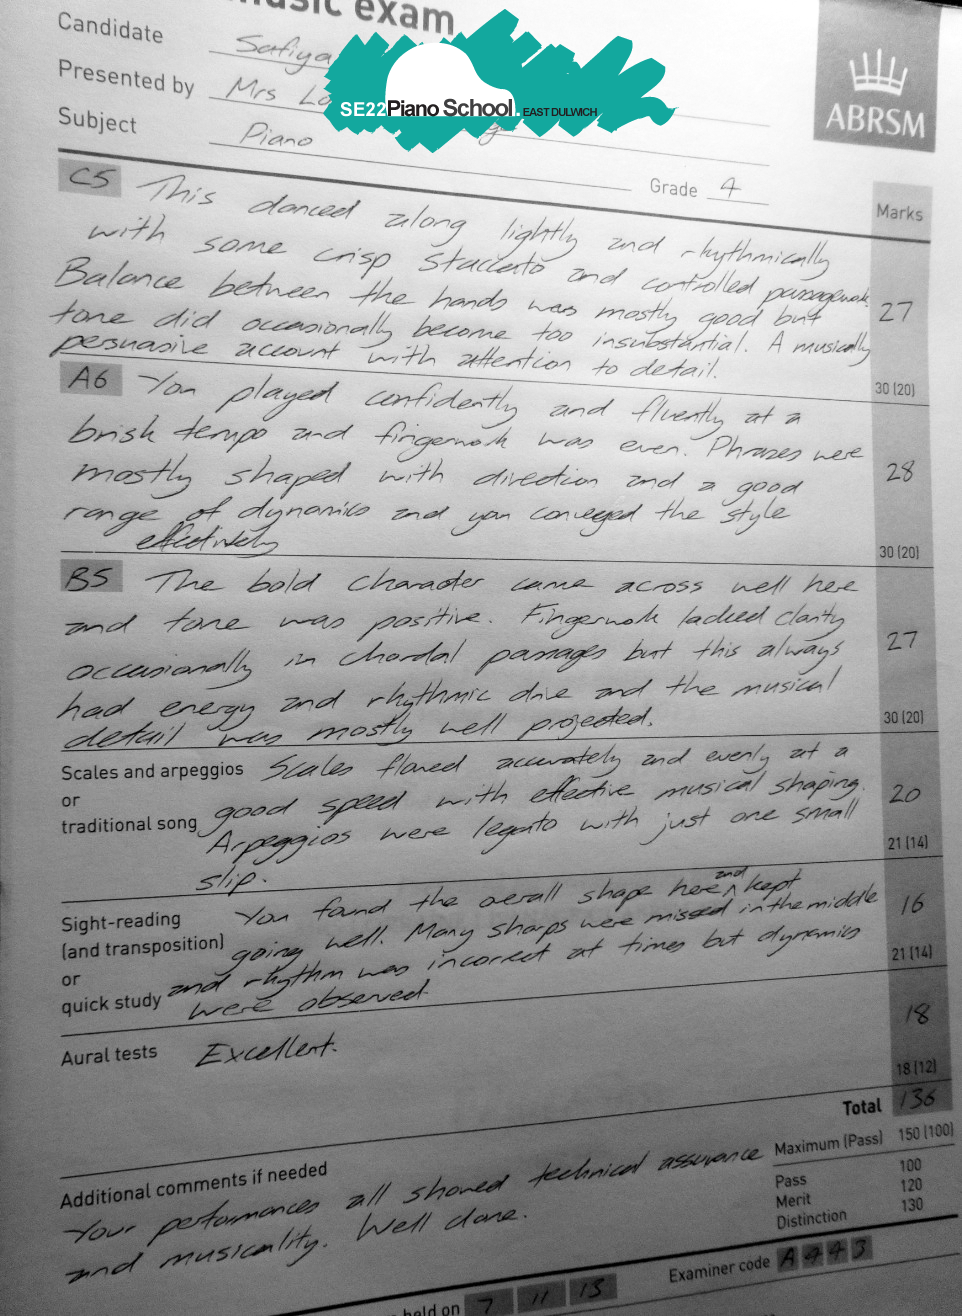 music exam
Candidate Safiya
Presented by Mrs
SE22 Piano School. EAST DULWICH
ABRSM
Subject Piano
Grade 4
Marks
C5 This danced along lightly and rhythmically
with some crisp staccato and controlled passagework.
Balance between the hands was mostly good but
tone did occasionally become too insubstantial. A musically
persuasive account with attention to detail.
27
30 (20)
A6 You played confidently and fluently at a
brisk tempo and fingerwork was even. Phrases were
mostly shaped with direction and a good
range of dynamics and you conveyed the style
effectively
28
30 (20)
B5 The bold character came across well here
and tone was positive. Fingerwork lacked clarity
occasionally in chordal passages but this always
had energy and rhythmic drive and the musical
detail was mostly well projected.
27
30 (20)
Scales and arpeggios
or
traditional song
Scales flowed accurately and evenly at a
good speed with effective musical shaping.
Arpeggios were legato with just one small
slip.
20
21 (14)
Sight-reading
(and transposition)
or
quick study
You found the overall shape here and kept
going well. Many sharps were missed in the middle
and rhythm was incorrect at times but dynamics
were observed.
16
21 (14)
Aural tests Excellent.
18
18 (12)
Total 136
Maximum (Pass) 150 (100)
Pass 100
Merit 120
Distinction 130
Additional comments if needed
Your performances all showed technical assurance
and musicality. Well done.
held on 7 11 13
Examiner code A 4 4 3